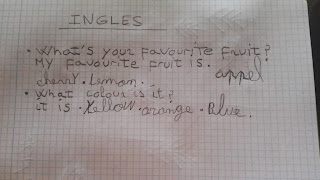 INGLES
• What's your favourite fruit?
My favourite fruit is. appel
cherry. Lemon.
• What colour is it?
it is • Yellow. orange • Blue.